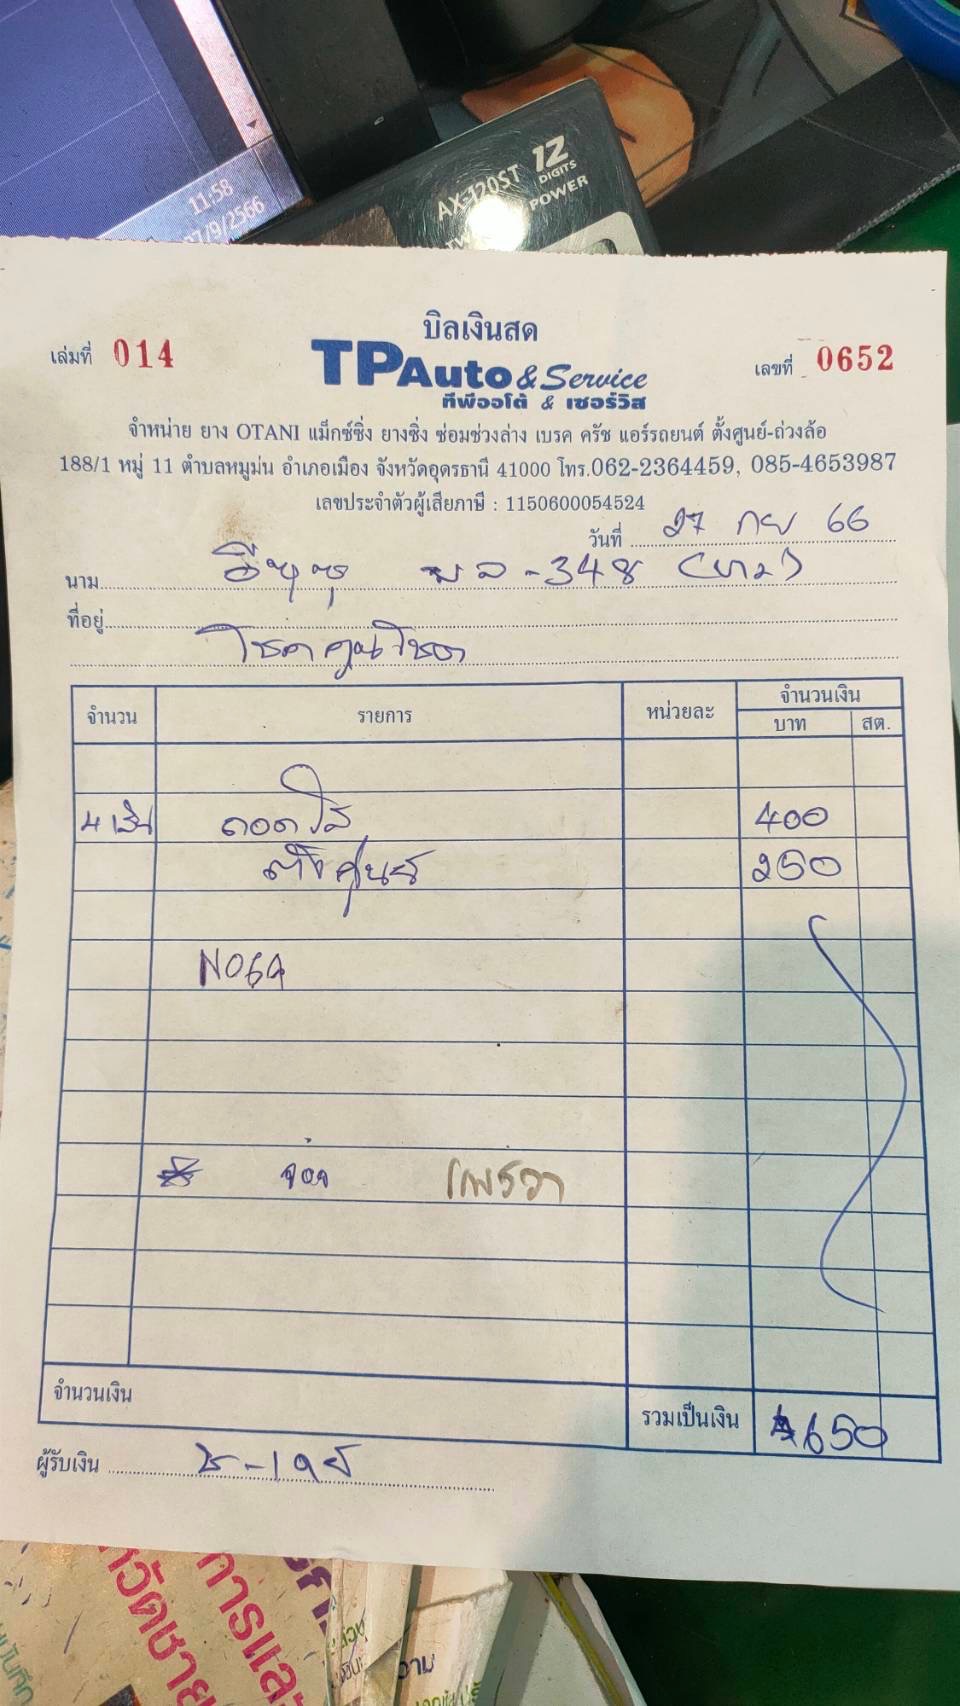 11:58
/9/2566
AX-120ST 12
DIGITS
POWER
บิลเงินสด
เล่มที่ 014
TP Auto & Service
เลขที่ 0652
ทีพีออโต้ & เซอร์วิส
จำหน่าย ยาง OTANI แม็กซ์ซิ่ง ยางซิ่ง ซ่อมช่วงล่าง เบรค ครัช แอร์รถยนต์ ตั้งศูนย์-ถ่วงล้อ
188/1 หมู่ 11 ตำบลหมูม่น อำเภอเมือง จังหวัดอุดรธานี 41000 โทร.062-2364459, 085-4653987
เลขประจำตัวผู้เสียภาษี : 1150600054524
วันที่ 27 กย 66
นาม อีซูซุ
ที่อยู่
โชคคูณโชค
จำนวน รายการ หน่วยละ จำนวนเงิน
บาท สต.
4 เส้น ถอดใส่ 400
ตั้งศูนย์ 250
N069
จำนวนเงิน รวมเป็นเงิน 650
ผู้รับเงิน